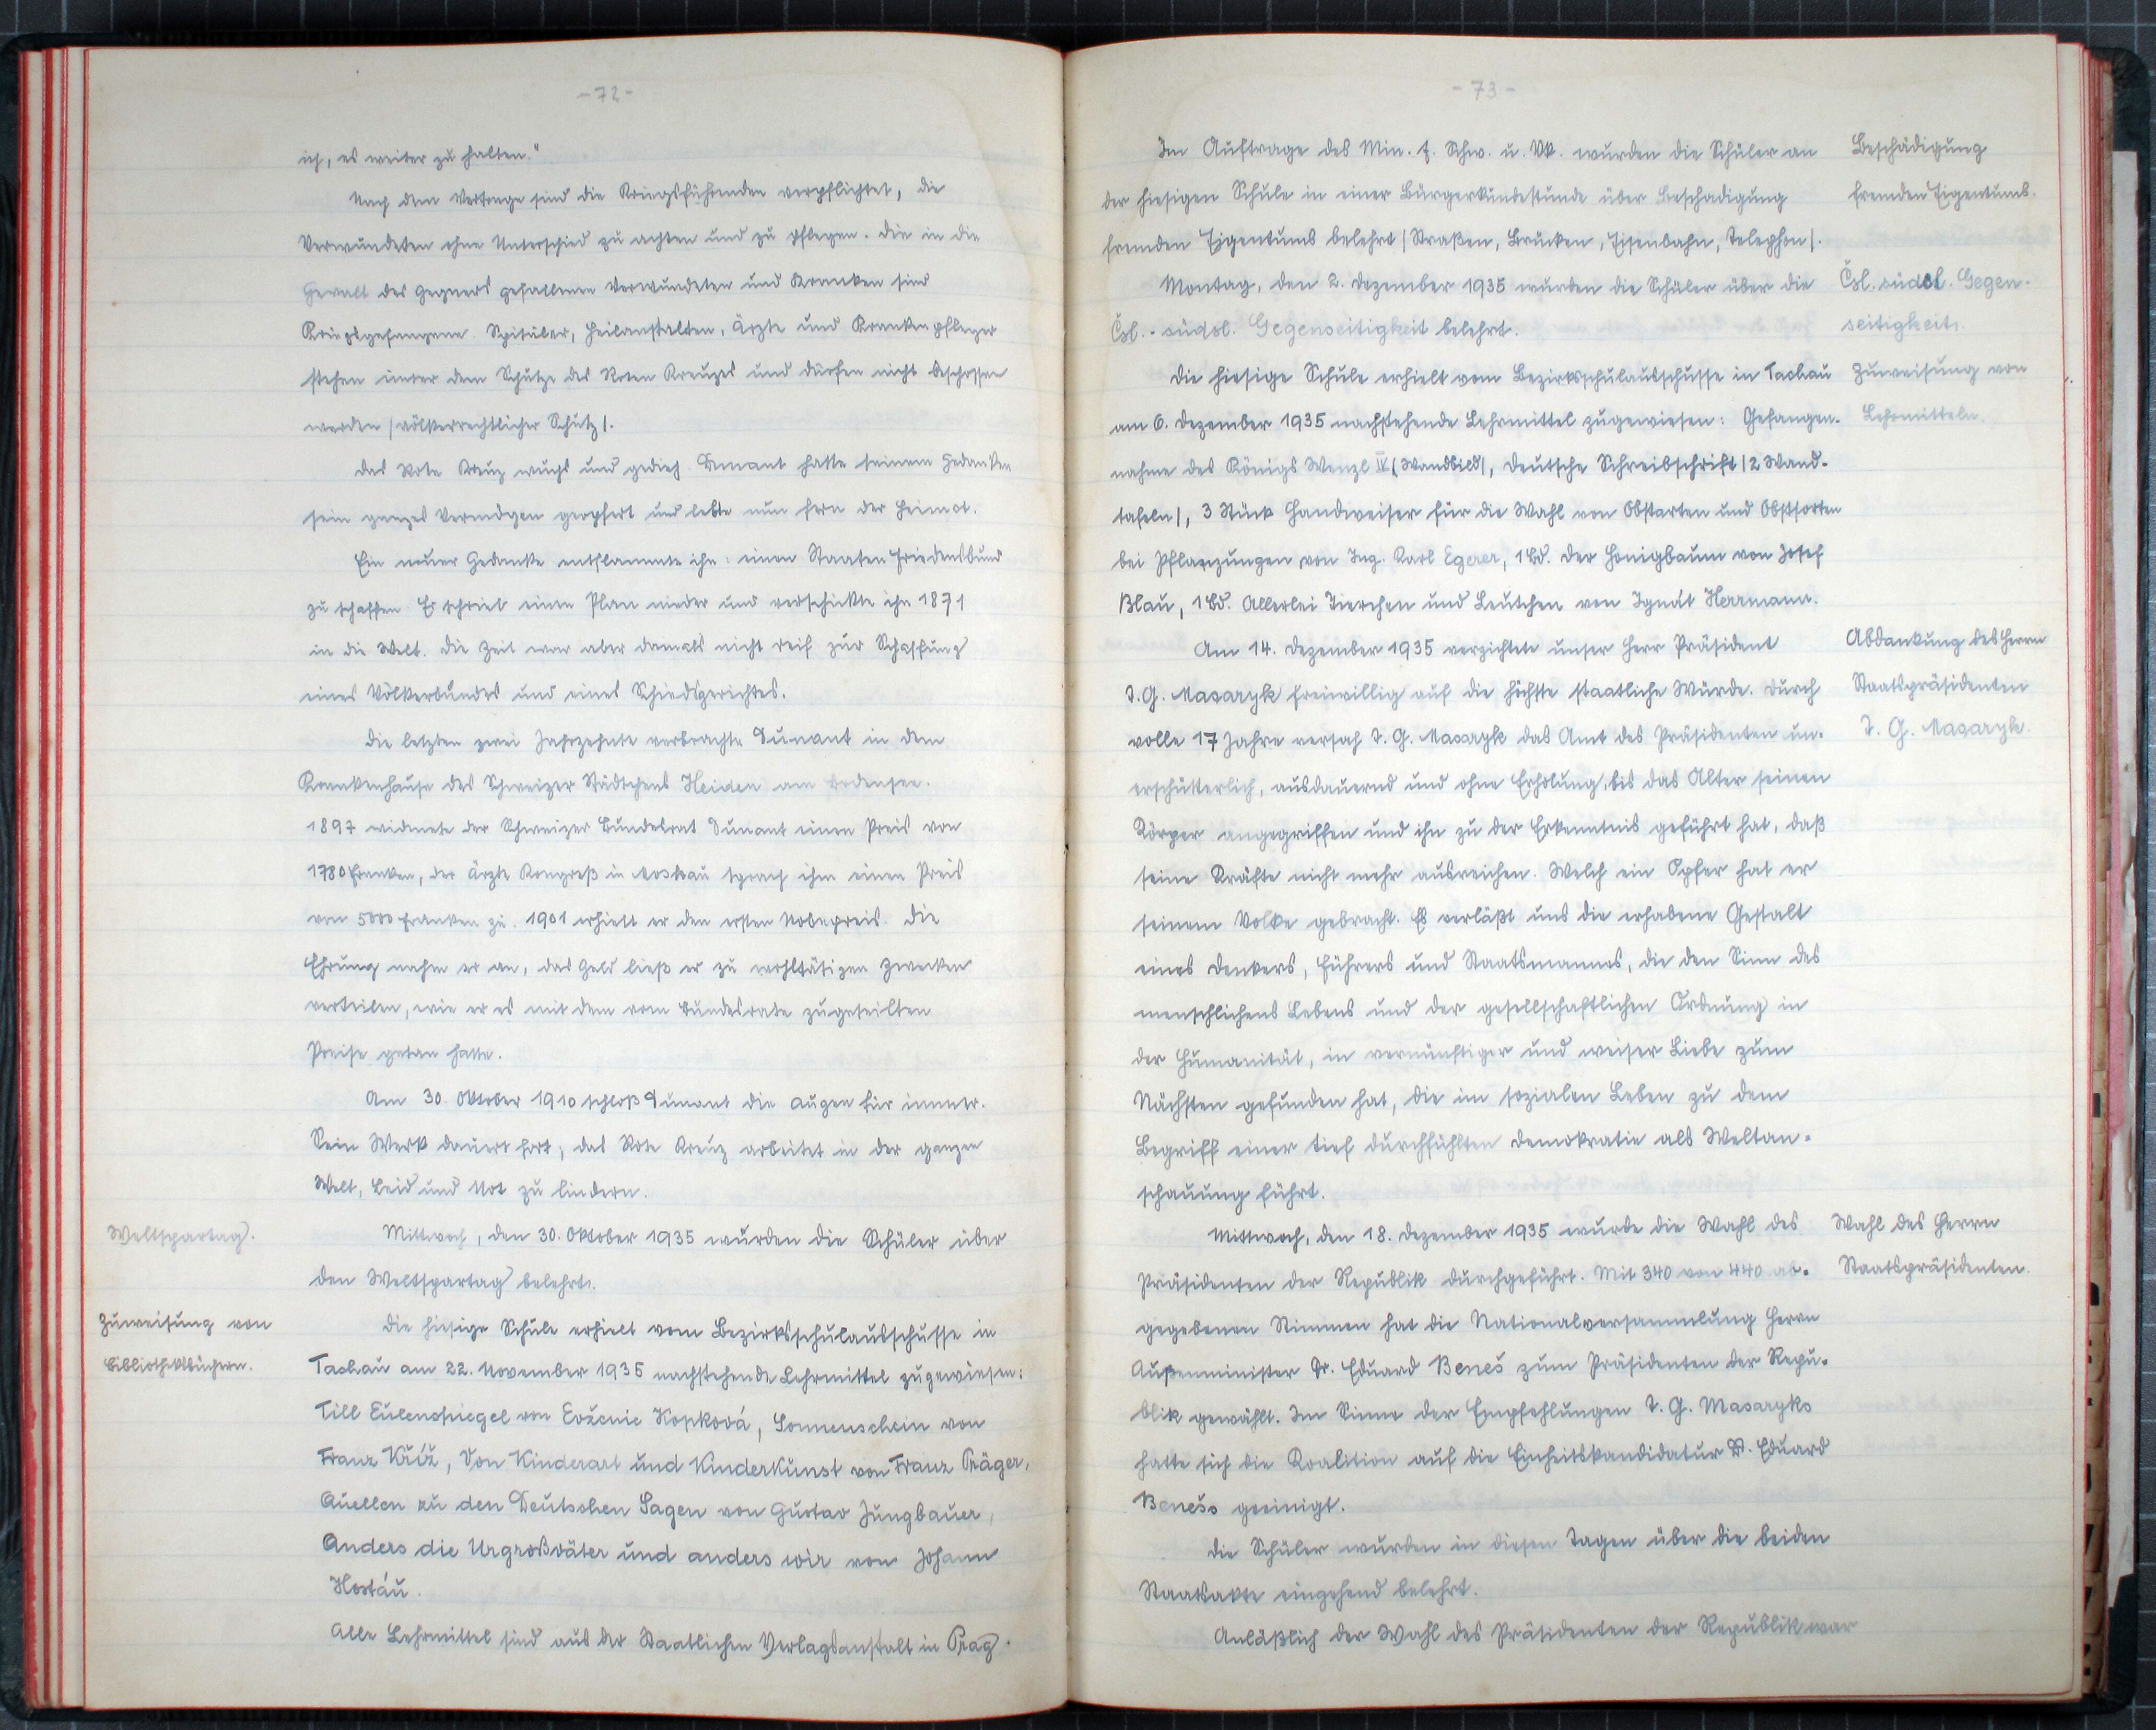 -72-
ich, es weiter zu halten."
Nach dem Vertrage sind die Kriegsführenden verpflichtet, die
Verwundeten ohne Unterschied zu achten und zu pflegen. Die in die
Gewalt des Gegners gefallenen Verwundeten und Kranken sind
Kriegsgefangene. Spitäler, Heilanstalten, Ärzte und Krankenpfleger
stehen unter dem Schutze des Roten Kreuzes und dürfen nicht beschossen
werden /völkerrechtlicher Schutz/.
Das Rote Kreuz wuchs und gedieh. Dunant hatte seinem Gedanken
sein ganzes Vermögen geopfert und lebte nun fern der Heimat.
Ein neuer Gedanke entflammte ihn: einen Staaten Friedensbund
zu schaffen. Er schrieb einen Plan nieder und verschickte ihn 1871
in die Welt. Die Zeit war aber damals nicht reif zur Schaffung
eines Völkerbundes und eines Schiedsgerichtes.
Die letzten zwei Jahrzehnte verbrachte Dunant in dem
Krankenhause des Schweizer Städtchens Heiden am Bodensee.
1897 widmete der Schweizer Bundesrat Dunant einen Preis von
1780 Franken, der Ärzte Kongreß in Moskau sprach ihm einen Preis
von 5000 Franken zu. 1901 erhielt er den ersten Nobelpreis. Die
Ehrung nahm er an, das Geld ließ er zu wohltätigen Zwecken
verteilen, wie er es mit dem vom Bundesrate zugeteilten
Preise getan hatte.
Am 30. Oktober 1910 schloß Dunant die Augen für immer.
Sein Werk dauert fort, das Rote Kreuz arbeitet in der ganzen
Welt, Leid und Not zu lindern.
Weltspartag.
Mittwoch, den 30. Oktober 1935 wurden die Schüler über
den Weltspartag belehrt.
Zuweisung von
Bibliotheksbüchern.
Die hiesige Schule erhielt vom Bezirksschulausschusse in
Tachau am 22. November 1935 nachstehende Lehrmittel zugewiesen:
Till Eulenspiegel von Evženie Kopková, Sonnenschein von
Franz Kříž, Von Kinderart und Kinderkunst von Franz Präger,
Quellen zu den Deutschen Sagen von Gustav Jungbauer,
Anders die Urgroßväter und anders wir von Johann
Hostáu.
Alle Lehrmittel sind aus der Staatlichen Verlagsanstalt in Prag.
-73-
Im Auftrage des Min. f. Schw. u. Vk. wurden die Schüler an
der hiesigen Schule in einer Bürgerkundestunde über Beschädigung
fremden Eigentums belehrt /Straßen, Brücken, Eisenbahn, Telephon/.
Beschädigung
fremden Eigentums.
Montag, den 2. Dezember 1935 wurden die Schüler über die
Čsl. - südsl. Gegenseitigkeit belehrt.
Čsl. südsl. Gegen-
seitigkeit.
Die hiesige Schule erhielt vom Bezirksschulausschusse in Tachau
am 6. Dezember 1935 nachstehende Lehrmittel zugewiesen: Gefangen-
nahme des Königs Wenzl IV /Wandbild/, Deutsche Schreibschrift /2 Wand-
tafeln/, 3 Stück Handweiser für die Wahl von Obstarten und Obstsorten
bei Pflanzungen von Ing. Karl Egerer, 1 Bd. Der Honigbaum von Josef
Blau, 1 Bd. Allerlei Tierchen und Leutchen von Ignát Herrmann.
Zuweisung von
Lehrmitteln.
Am 14. Dezember 1935 verzichtete unser Herr Präsident
T. G. Masaryk freiwillig auf die höchste staatliche Würde. Durch
volle 17 Jahre versah T. G. Masaryk das Amt des Präsidenten un-
erschütterlich, ausdauernd und ohne Erholung, bis das Alter seinen
Körper angegriffen und ihn zu der Erkenntnis geführt hat, daß
seine Kräfte nicht mehr ausreichen. Welch ein Opfer hat er
seinem Volke gebracht. Es verläßt uns die erhabene Gestalt
eines Denkers, Führers und Staatsmannes, die den Sinn des
menschlichens Lebens und der gesellschaftlichen Ordnung in
der Humanität, in vernünftiger und weiser Liebe zum
Nächsten gefunden hat, die im sozialen Leben zu dem
Begriff einer tief durchfühlten Demokratie als Weltan-
schauung führt.
Abdankung des Herrn
Staatspräsidenten
T. G. Masaryk.
Mittwoch, den 18. Dezember 1935 wurde die Wahl des
Präsidenten der Republik durchgeführt. Mit 340 von 440 ab-
gegebenen Stimmen hat die Nationalversammlung Herrn
Außenminister Dr. Eduard Beneš zum Präsidenten der Repu-
blik gewählt. Im Sinne der Empfehlungen T. G. Masaryks
hatte sich die Koalition auf die Einheitskandidatur Dr. Eduard
Benešs geeinigt.
Wahl des Herrn
Staatspräsidenten.
Die Schüler wurden in diesen Tagen über die beiden
Staatsakte eingehend belehrt.
Anläßlich der Wahl des Präsidenten der Republik war